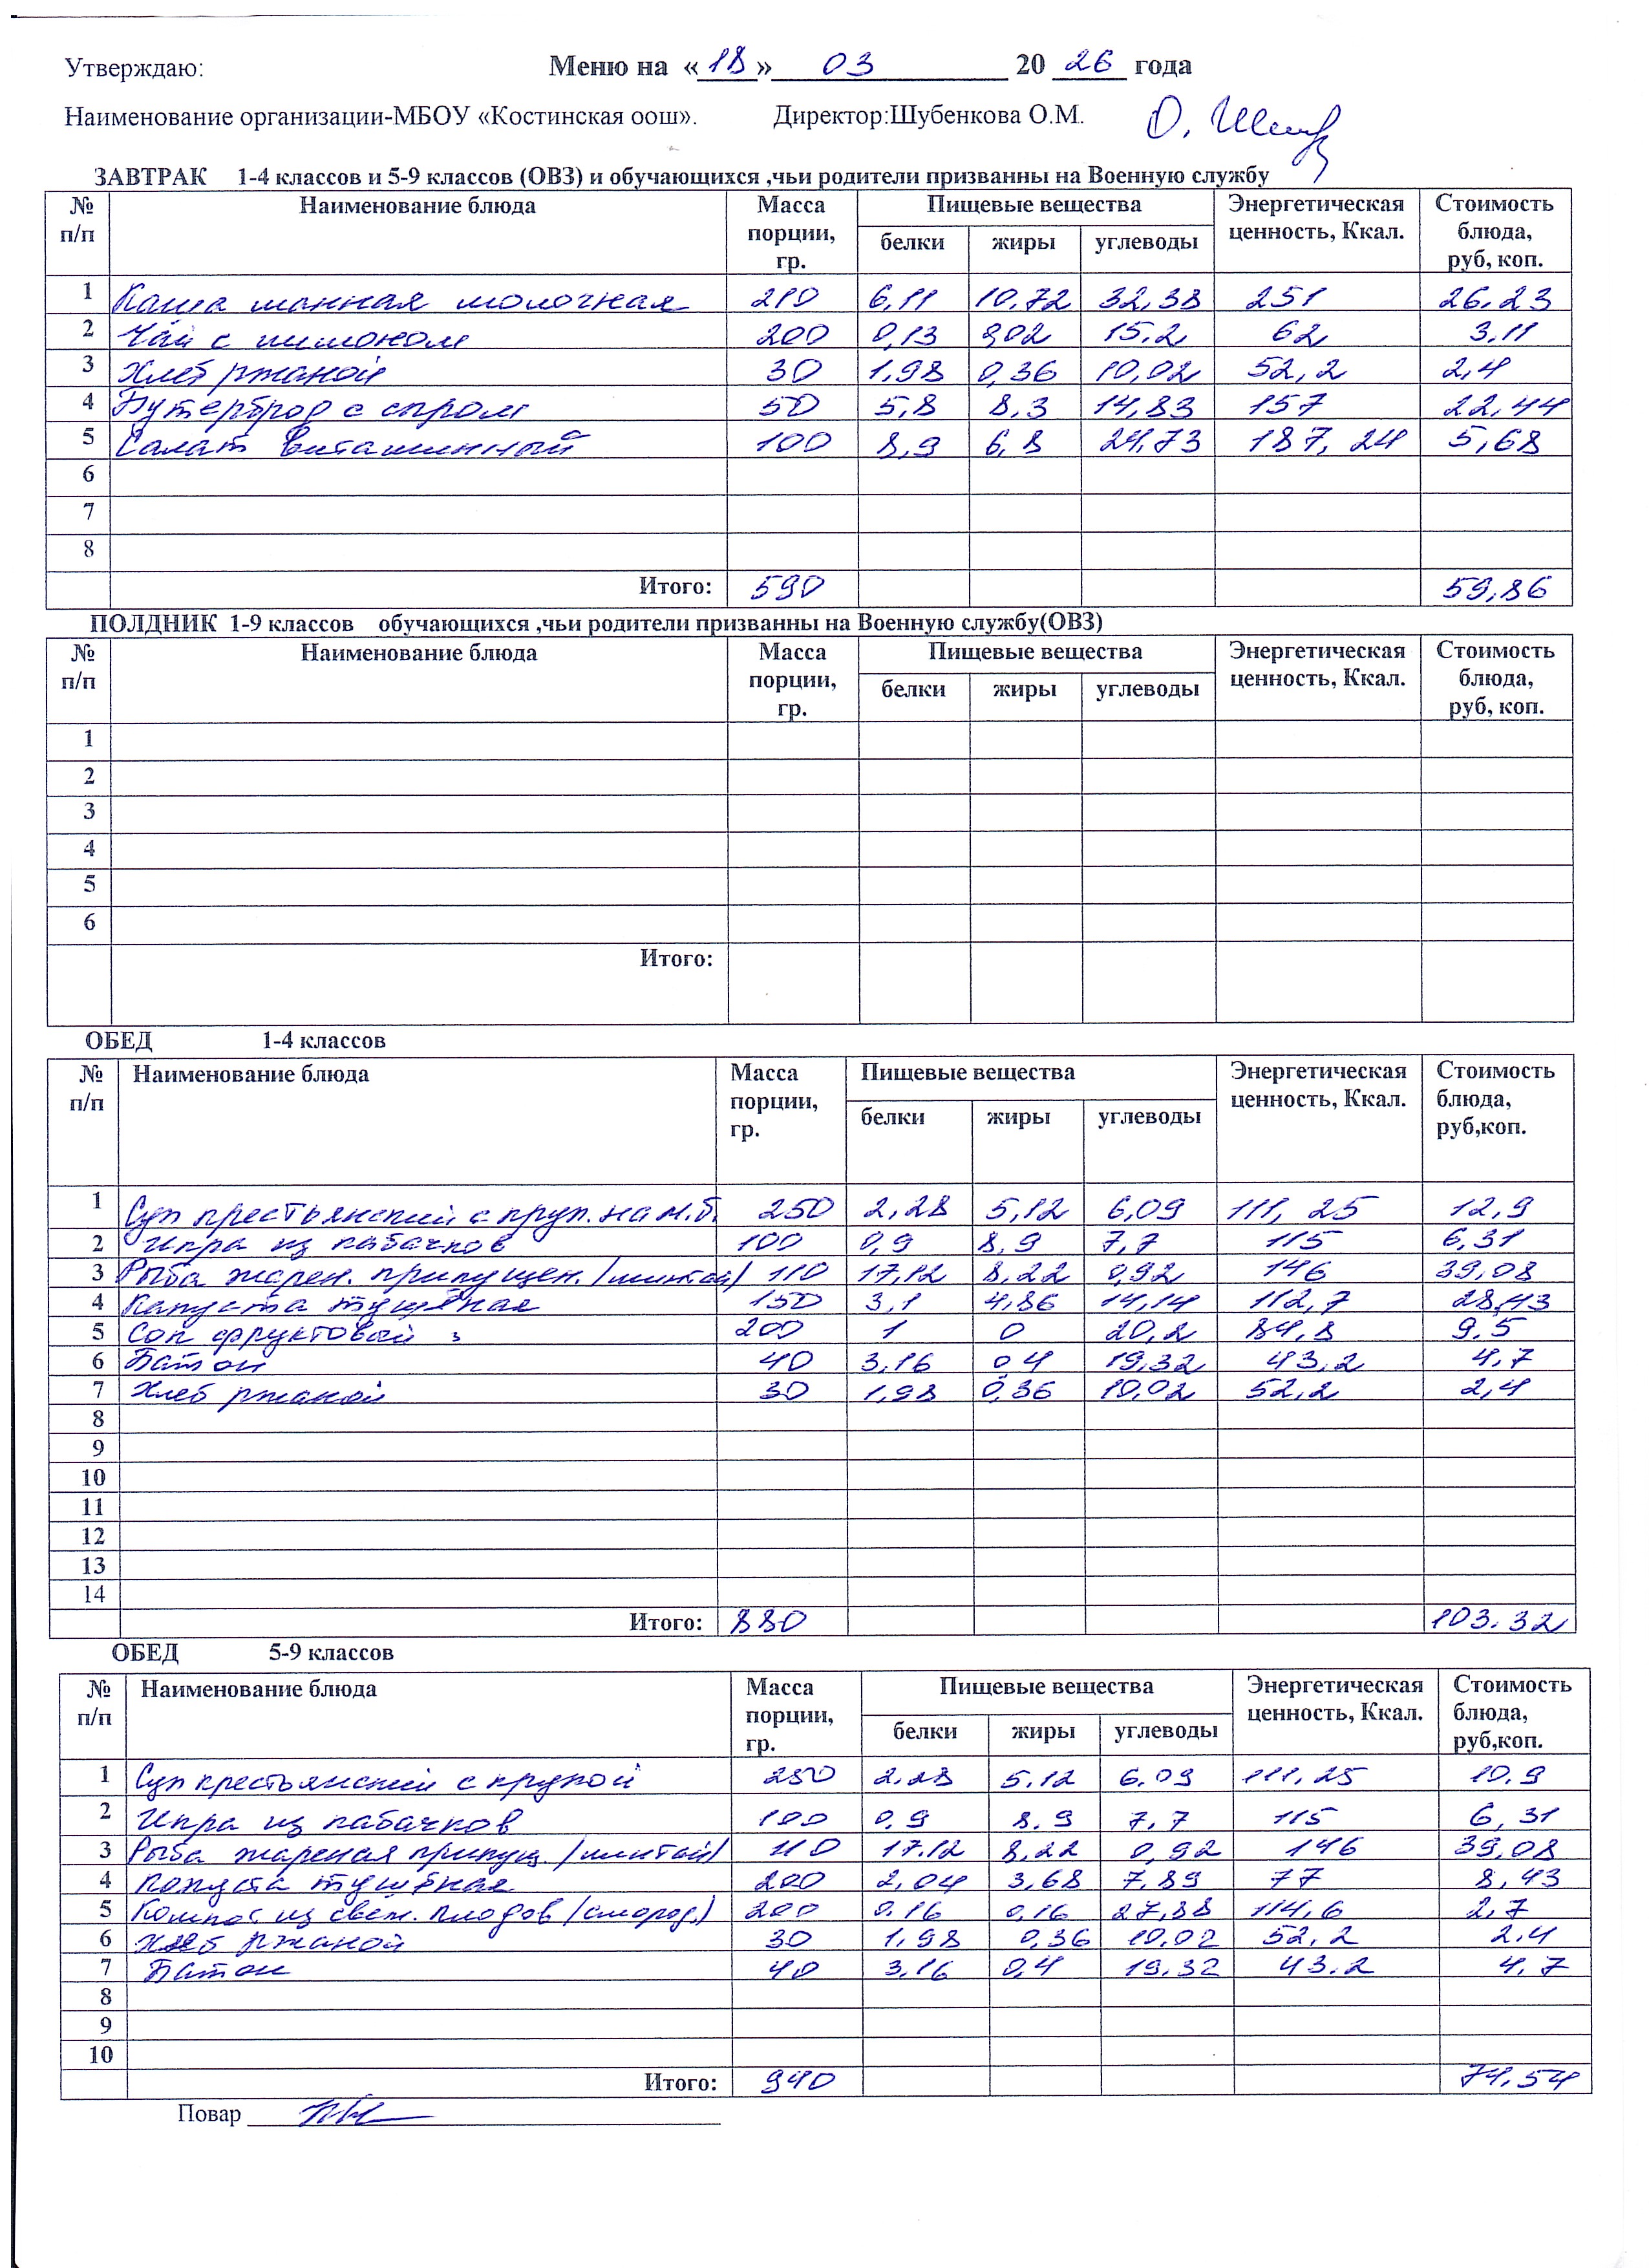 Утверждаю: Меню на «18» 03 2026 года
Наименование организации-МБОУ «Костинская оош». Директор:Шубенкова О.М.
ЗАВТРАК 1-4 классов и 5-9 классов (ОВЗ) и обучающихся ,чьи родители призванны на Военную службу
№ п/п Наименование блюда Масса порции, гр. Пищевые вещества Энергетическая ценность, Ккал. Стоимость блюда, руб, коп.
белки жиры углеводы
1 Каша манная молочная 210 6,11 10,72 32,38 251 26,23
2 Чай с лимоном 200 0,13 0,02 15,2 62 3,11
3 Хлеб ржаной 30 1,98 0,36 10,02 52,2 2,4
4 Бутерброд с сыром 50 5,8 8,3 14,83 157 22,44
5 Салат витаминный 100 8,9 6,8 24,73 187,24 5,68
6
7
8
Итого: 590 59,86
ПОЛДНИК 1-9 классов обучающихся ,чьи родители призванны на Военную службу(ОВЗ)
№ п/п Наименование блюда Масса порции, гр. Пищевые вещества Энергетическая ценность, Ккал. Стоимость блюда, руб, коп.
белки жиры углеводы
1
2
3
4
5
6
Итого:
ОБЕД 1-4 классов
№ п/п Наименование блюда Масса порции, гр. Пищевые вещества Энергетическая ценность, Ккал. Стоимость блюда, руб,коп.
белки жиры углеводы
1 Суп крестьянский с круп. на м.б. 250 2,28 5,12 6,09 111,25 12,9
2 Икра из кабачков 100 0,9 8,9 7,7 115 6,31
3 Рыба жарен. припущен. /минтай/ 110 17,12 8,22 0,92 146 39,08
4 Капуста тушёная 150 3,1 4,86 14,14 112,7 28,43
5 Сок фруктовый 200 1 0 20,2 84,8 9,5
6 Батон 40 3,16 0,4 19,32 43,2 4,7
7 Хлеб ржаной 30 1,98 0,36 10,02 52,2 2,4
8
9
10
11
12
13
14
Итого: 880 103.32
ОБЕД 5-9 классов
№ п/п Наименование блюда Масса порции, гр. Пищевые вещества Энергетическая ценность, Ккал. Стоимость блюда, руб,коп.
белки жиры углеводы
1 Суп крестьянский с крупой 250 2.28 5.12 6.09 111,25 10,9
2 Икра из кабачков 100 0,9 8.9 7,7 115 6,31
3 Рыба жареная припущ. /минтай/ 110 17.12 8,22 0,92 146 39,08
4 Капуста тушёная 200 2,04 3,68 7,89 77 8,43
5 Компос из свеж. плодов /смород./ 200 0.16 0,16 27,88 114,6 2,7
6 Хлеб ржаной 30 1,98 0,36 10,02 52,2 2,4
7 Батон 40 3,16 0,4 19,32 43.2 4,7
8
9
10
Итого: 940 74,54
Повар